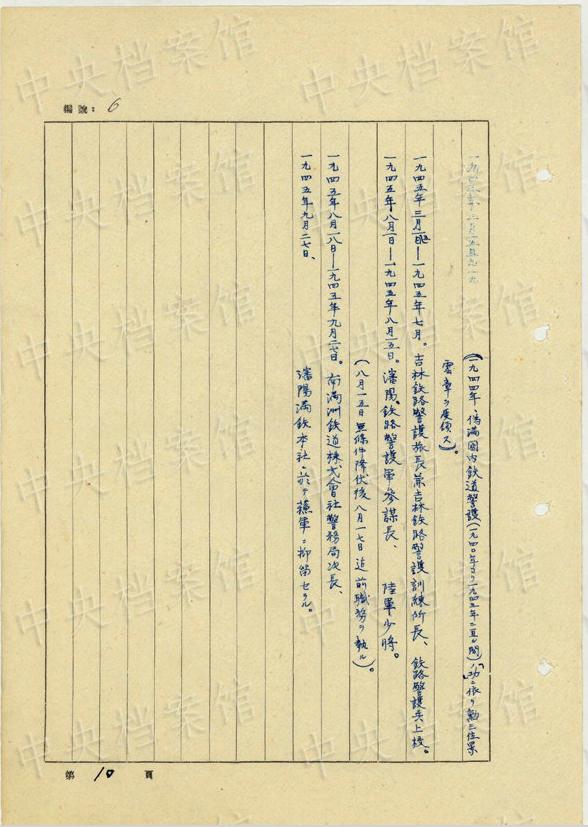 編號：6
(一九四四年、偽満国内鉄道警護(一九四〇年ヨリ一九四三年ニ至ル間)ノ功ニ依リ勲三位景
雲章ヲ受領ス)。
一九四五年三月一日—一九四五年七月。吉林鉄路警護旅長兼吉林鉄路警護訓練所長、鉄路警護兵上校。
一九四五年八月一日—一九四五年八月一五日。瀋陽、鉄路警護軍参謀長、陸軍少将。
(八月一五日無條件降伏後八月一七日迄前職務ヲ執ル)。
一九四五年八月一八日—一九四五年九月二七日。南満洲鉄道株式會社警務局次長、
一九四五年九月二七日、瀋陽満鉄本社ニ於テ蘇軍ニ抑留セラル。
第10頁
中央档案馆